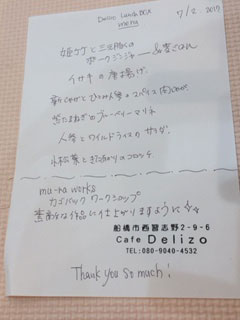 Delizo Lunch BOX
menu
7/2. 2017
姫竹と三元豚の
ポークジンジャー
イサキの唐揚げ
新じゃがとひよこ豆の
玉ねぎのブルーベリーマリネ
人参とワイルドライスのサラダ
小松菜と
コロッケ
mu-ra works
カゴバッグワークショップ
素敵な作品に仕上がりますように☆☆
船橋市西習志野2-9-6
Cafe Delizo
TEL:080-9040-4532
Thank you so much!